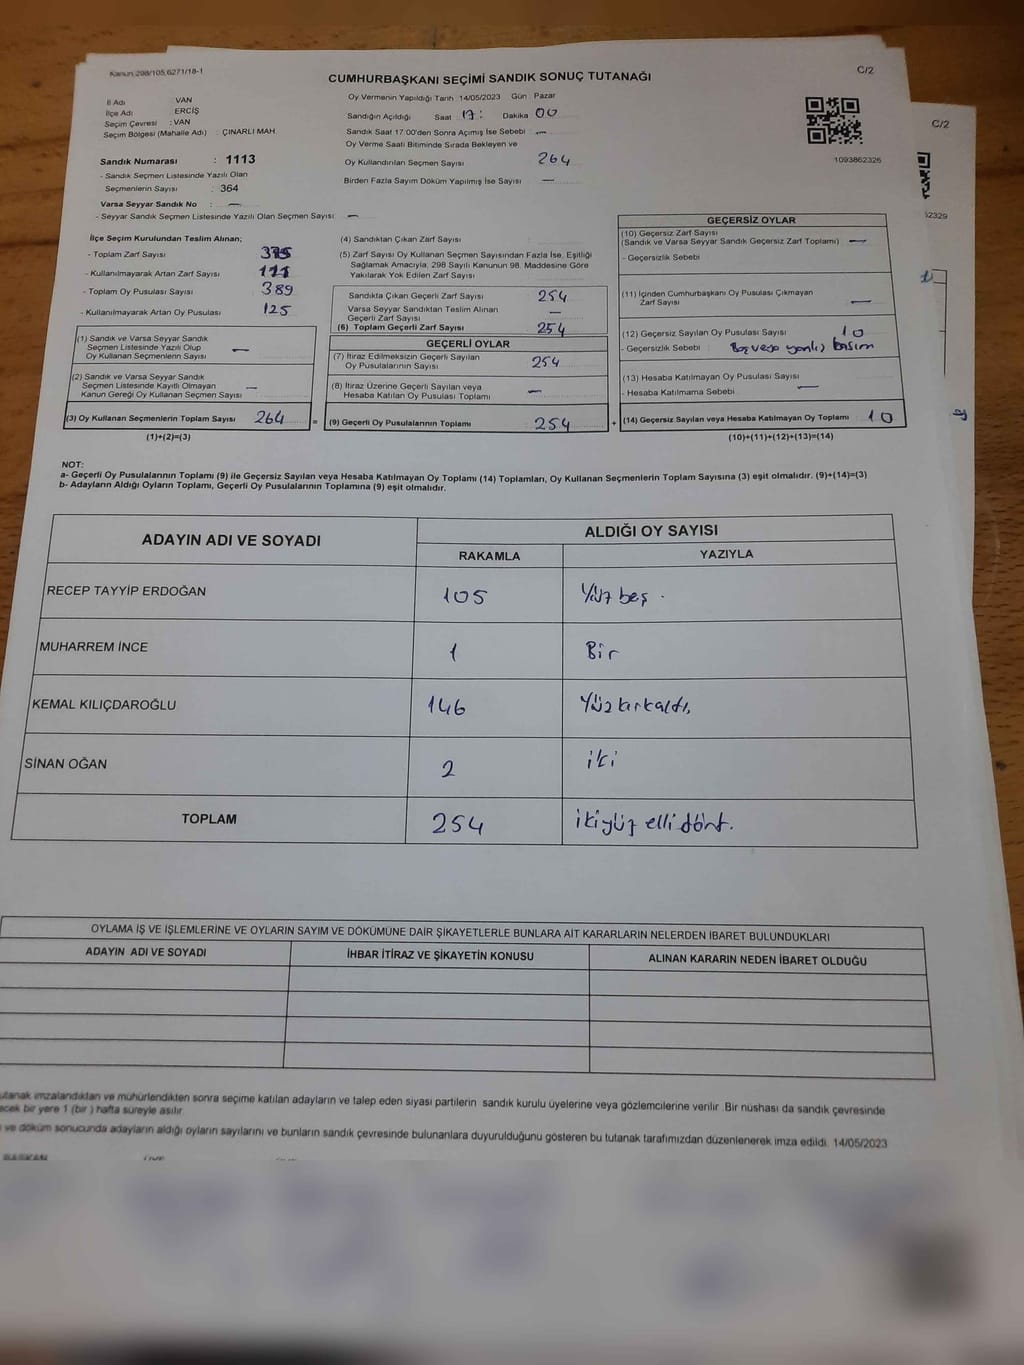 Kanun 298/105,6271/18-1
C/2
CUMHURBAŞKANI SEÇİMİ SANDIK SONUÇ TUTANAĞI
İl Adı VAN
İlçe Adı ERCİŞ
Seçim Çevresi : VAN
Seçim Bölgesi (Mahalle Adı) : ÇINARLI MAH.
Sandık Numarası : 1113
- Sandık Seçmen Listesinde Yazılı Olan
Seçmenlerin Sayısı : 364
Varsa Seyyar Sandık No : —
- Seyyar Sandık Seçmen Listesinde Yazılı Olan Seçmen Sayısı : —
Oy Vermenin Yapıldığı Tarih : 14/05/2023 Gün : Pazar
Sandığın Açıldığı Saat 17: Dakika 00
Sandık Saat 17.00'den Sonra Açılmış İse Sebebi : —
Oy Verme Saati Bitiminde Sırada Bekleyen ve
Oy Kullandırılan Seçmen Sayısı 264
Birden Fazla Sayım Döküm Yapılmış İse Sayısı —
1093862326
C/2
İlçe Seçim Kurulundan Teslim Alınan;
- Toplam Zarf Sayısı 375
- Kullanılmayarak Artan Zarf Sayısı 111
- Toplam Oy Pusulası Sayısı 389
- Kullanılmayarak Artan Oy Pusulası 125
(1) Sandık ve Varsa Seyyar Sandık
Seçmen Listesinde Yazılı Olup
Oy Kullanan Seçmenlerin Sayısı —
(2) Sandık ve Varsa Seyyar Sandık
Seçmen Listesinde Kayıtlı Olmayan
Kanun Gereği Oy Kullanan Seçmen Sayısı —
(3) Oy Kullanan Seçmenlerin Toplam Sayısı 264
(1)+(2)=(3)
(4) Sandıktan Çıkan Zarf Sayısı
(5) Zarf Sayısı Oy Kullanan Seçmen Sayısından Fazla İse, Eşitliği
Sağlamak Amacıyla, 298 Sayılı Kanunun 98. Maddesine Göre
Yakılarak Yok Edilen Zarf Sayısı
Sandıkta Çıkan Geçerli Zarf Sayısı 254
Varsa Seyyar Sandıktan Teslim Alınan
Geçerli Zarf Sayısı —
(6) Toplam Geçerli Zarf Sayısı 254
GEÇERLİ OYLAR
(7) İtiraz Edilmeksizin Geçerli Sayılan
Oy Pusulalarının Sayısı 254
(8) İtiraz Üzerine Geçerli Sayılan veya
Hesaba Katılan Oy Pusulası Toplamı —
= (9) Geçerli Oy Pusulalarının Toplamı 254
GEÇERSİZ OYLAR
(10) Geçersiz Zarf Sayısı
(Sandık ve Varsa Seyyar Sandık Geçersiz Zarf Toplamı) —
- Geçersizlik Sebebi
(11) İçinden Cumhurbaşkanı Oy Pusulası Çıkmayan
Zarf Sayısı —
(12) Geçersiz Sayılan Oy Pusulası Sayısı 10
- Geçersizlik Sebebi : Boş veya yanlış basım
(13) Hesaba Katılmayan Oy Pusulası Sayısı
- Hesaba Katılmama Sebebi —
+ (14) Geçersiz Sayılan veya Hesaba Katılmayan Oy Toplamı 10
(10)+(11)+(12)+(13)=(14)
NOT:
a- Geçerli Oy Pusulalarının Toplamı (9) ile Geçersiz Sayılan veya Hesaba Katılmayan Oy Toplamı (14) Toplamları, Oy Kullanan Seçmenlerin Toplam Sayısına (3) eşit olmalıdır. (9)+(14)=(3)
b- Adayların Aldığı Oyların Toplamı, Geçerli Oy Pusulalarının Toplamına (9) eşit olmalıdır.
ADAYIN ADI VE SOYADI ALDIĞI OY SAYISI
RAKAMLA YAZIYLA
RECEP TAYYİP ERDOĞAN 105 Yüz beş.
MUHARREM İNCE 1 Bir
KEMAL KILIÇDAROĞLU 146 Yüz kırkaltı,
SİNAN OĞAN 2 iki
TOPLAM 254 ikiyüz elli dört.
OYLAMA İŞ VE İŞLEMLERİNE VE OYLARIN SAYIM VE DÖKÜMÜNE DAİR ŞİKAYETLERLE BUNLARA AİT KARARLARIN NELERDEN İBARET BULUNDUKLARI
ADAYIN ADI VE SOYADI İHBAR İTİRAZ VE ŞİKAYETİN KONUSU ALINAN KARARIN NEDEN İBARET OLDUĞU
utanak imzalandıktan ve mühürlendikten sonra seçime katılan adayların ve talep eden siyasi partilerin sandık kurulu üyelerine veya gözlemcilerine verilir. Bir nüshası da sandık çevresinde
ecek bir yere 1 (bir ) hafta süreyle asılır.
ve döküm sonucunda adayların aldığı oyların sayılarını ve bunların sandık çevresinde bulunanlara duyurulduğunu gösteren bu tutanak tarafımızdan düzenlenerek imza edildi. 14/05/2023